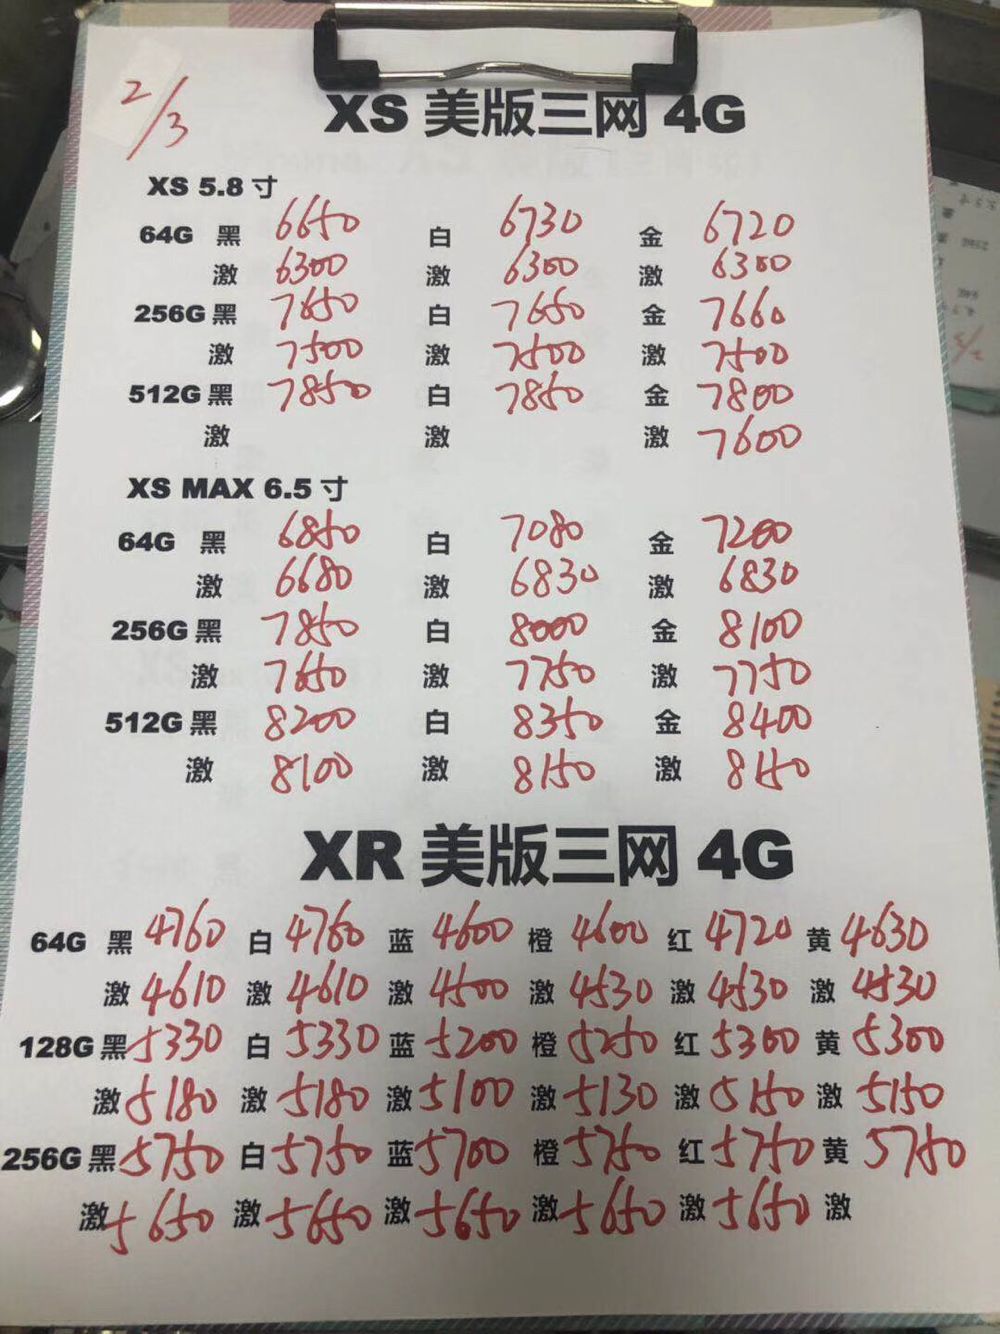 2/3
XS 美版三网 4G
XS 5.8 寸
64G 黑 6650 白 6730 金 6720
激 6300 激 6300 激 6300
256G 黑 7650 白 7650 金 7660
激 7500 激 7500 激 7500
512G 黑 7850 白 7850 金 7800
激 激 激 7600
XS MAX 6.5 寸
64G 黑 6850 白 7080 金 7200
激 6680 激 6830 激 6830
256G 黑 7850 白 8000 金 8100
激 7650 激 7750 激 7750
512G 黑 8200 白 8350 金 8400
激 8100 激 8150 激 8150
XR 美版三网 4G
64G 黑 4760 白 4760 蓝 4600 橙 4600 红 4720 黄 4630
激 4610 激 4610 激 4500 激 4530 激 4530 激 4530
128G 黑 5330 白 5330 蓝 5200 橙 5250 红 5300 黄 5300
激 5180 激 5180 激 5100 激 5130 激 5150 激 5150
256G 黑 5750 白 5750 蓝 5700 橙 5750 红 5750 黄 5750
激 5650 激 5650 激 5650 激 5650 激 5650 激